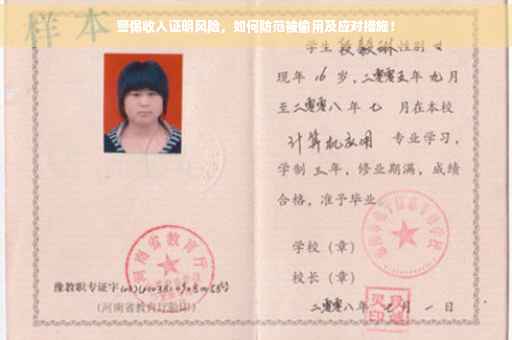 警保收入证明风险，如何防范被偷用及应对措施！
样本
学生 段毅琳 性别 女
现年 16 岁，二零零五年 九月
至二零零八 年 七 月在本校
计算机应用 专业学习，
学制 三 年，修业期满，成绩
合格，准予毕业。
学校（章）
校长（章）
二零零八年 七 月 一 日
河南省教育厅
豫教职专证字
（河南省教育厅验印）